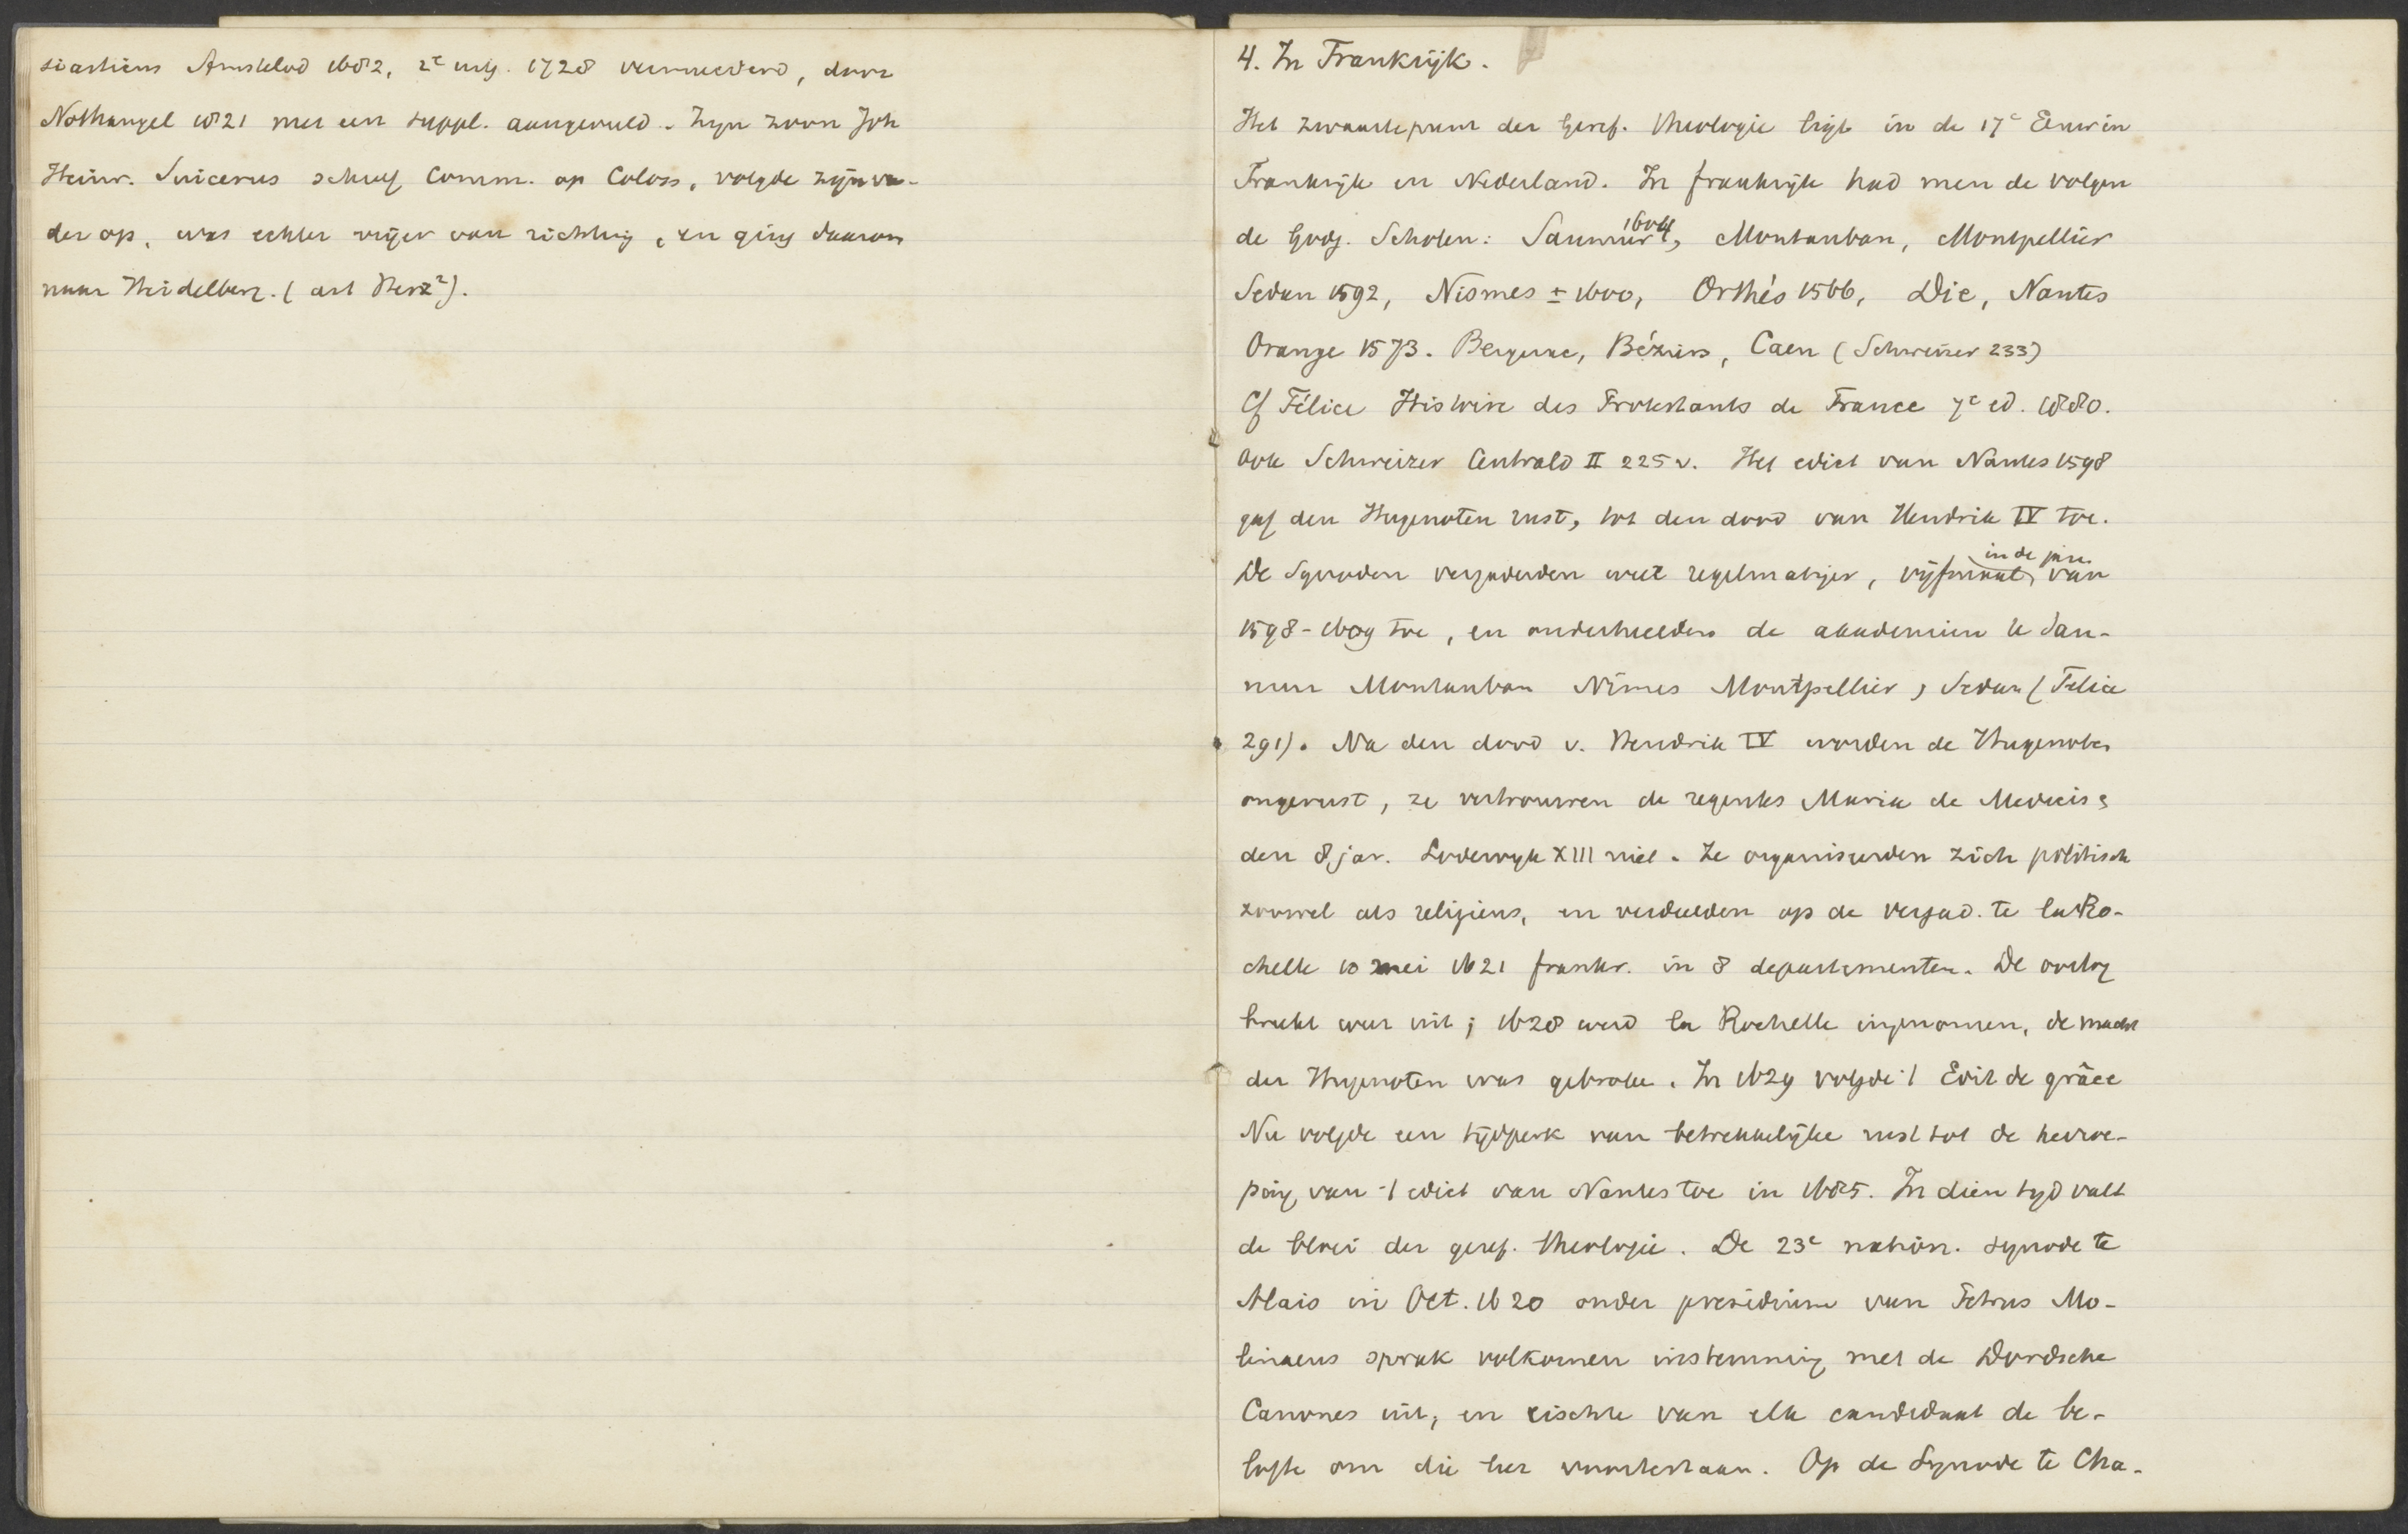 siasticus Amstelod 1682, 2e uitg. 1728 vermeerderd, door
Nothnagel 1821 met een suppl. aangevuld. Zijn zoon Joh
Heinr. Suicerus schreef Comm. op Coloss, volgde zijn va-
der op, was echter vrijer van richting, en ging daarom
naar Heidelberg. (art Herz²).
4. In Frankrijk.
Het zwaartepunt der Geref. theologie ligt in de 17e Eeuw in
Frankrijk en Nederland. In frankrijk had men de volgen
de Godg. Scholen: Saumur 1604, Montauban, Montpellier
Sedan 1592, Nismes ± 1600, Orthés 1566, Die, Nantes
Orange 1573. Bergerac, Béziers, Caen (Schweizer 233)
Cf Félice Histoire des Protestants de France 7e ed. 1880.
ook Schweizer Centrald II 225 v. Het edict van Nantes 1598
gaf den Hugenoten rust, tot den dood van Hendrik IV toe.
De Synoden vergaderden weer regelmatiger, vijfmaal in de jare van
1598-1609 toe, en onderhielden de akademien te Sau-
mur Montauban Nîmes Montpellier, Sedan (Felice
291). Na den dood v. Hendrik IV worden de Hugenoten
ongerust, ze vertrouwen de regentes Maria de Medicis &
den 8 jar. Lodewijk XIII niet. Ze organiseerden zich politisch
zoowel als religieus, en verdeelden op de vergad. te la Ro-
chelle 10 mei 1621 frankr. in 8 departementen. De oorlog
breekt weer uit; 1628 werd la Rochelle ingenomen, de macht
der Hugenoten was gebroken. In 1629 volgde 't Edit de grâce
Nu volgde een tijdperk van betrekkelijke rust tot de herroe-
ping van 't edict van Nantes toe in 1685. In dien tijd valt
de bloei der geref. theologie. De 23e nation. synode te
Alais in Oct. 1620 onder presidium van Petrus Mo-
linaeus sprak volkomen instemming met de Dordsche
Canones uit, en eischte van elk candidaat de be-
lofte om die leer voortestaan. Op de Synode te Cha-